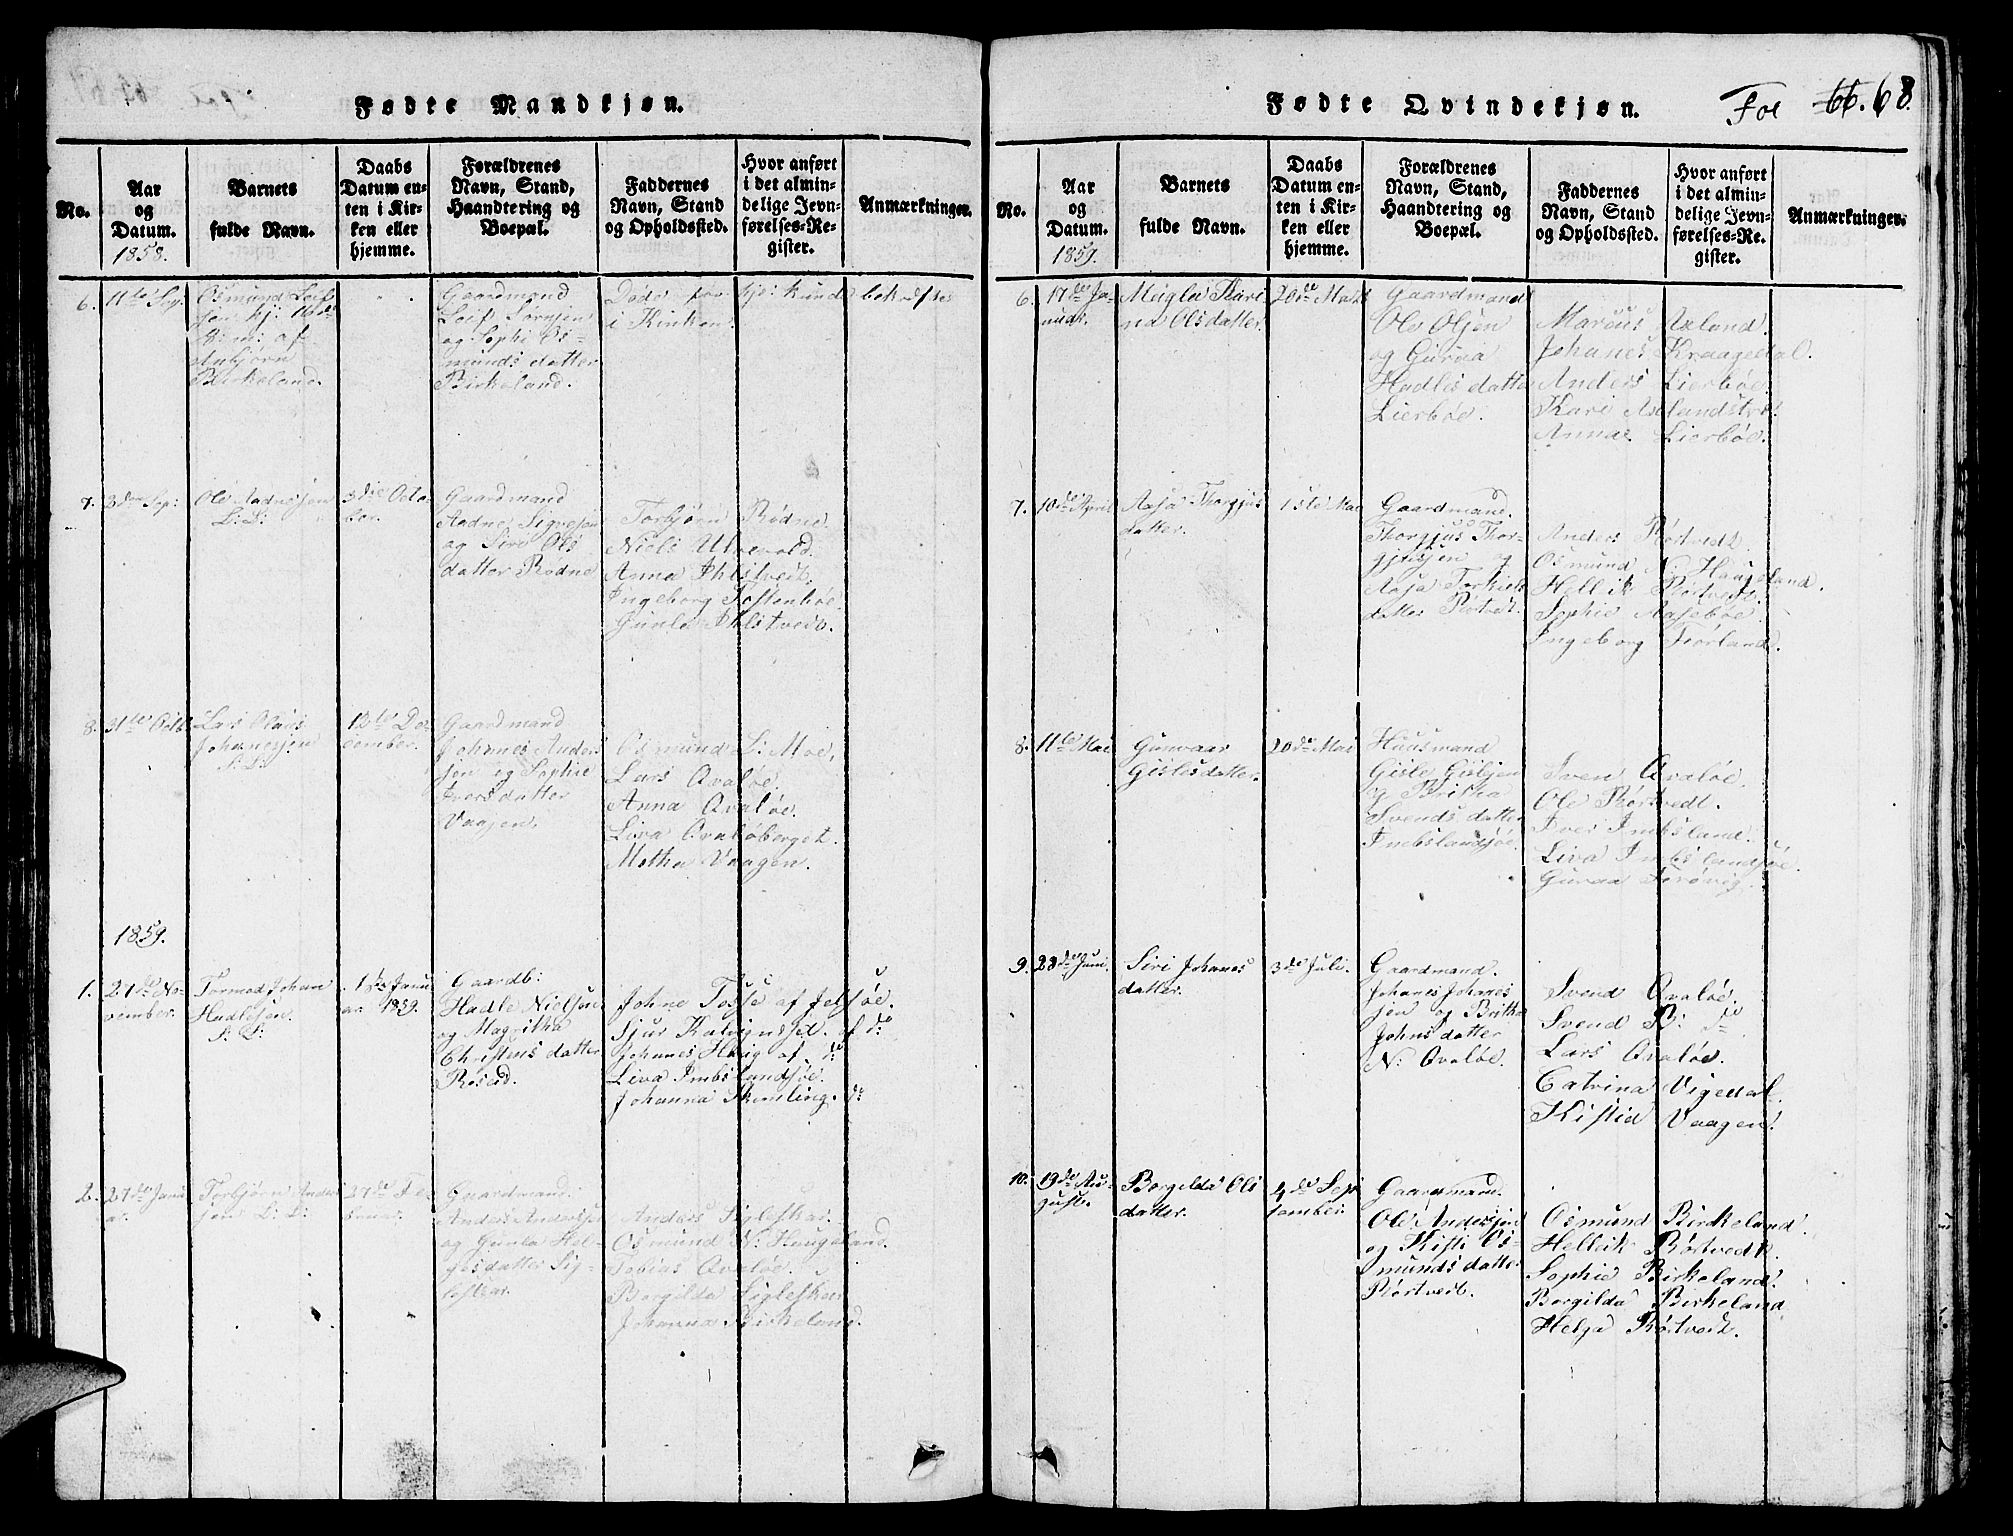 Fødte Mandkjøn.
No.
Aar
og
Datum.
1858.
Barnets
fulde Navn.
Daabs
Datum en-
ten i Kir-
ken eller
hjemme.
Forældrenes
Navn, Stand,
Haandtering og
Boepæl.
Faddernes
Navn, Stand
og Opholdssted.
Hvor anført
i det almin-
delige Jevn-
førelses-Re-
gister.
Anmærkninger.
6.
11te Sep:
Osmund Leif
sen hj:
af
Anbjørn
Birkeland.
Gaardmand
Leif
og Sophi Os-
munds datter
Birkeland.
Døde før
i Kirken.
bekræftes
7.
3die Sep:
Ole Aadnesjen
S: S:
3die Octo
ber.
Gaardmand
Aadne Sigvesjen
og Siri Ols
datter Rødne
Torbjørn Rødne.
Niels Utvevold.
Anna Ihlstveit.
Ingeborg Toftenhøe.
Gunla Ihlstveit.
8.
31te Octb
Lars Olaus
Johanesjen
S: S:
12te De-
cember.
Gaardmand
Johanes Anders
sen og Sophie
Ivers datter
Vaagen.
Osmund S: Moe.
Lars Ovaløe.
Anna Ovaløe.
Liva Ovaløberget.
Metha Vaagen.
1859.
1.
27de No-
vember.
Tormod Johan
Hadlesjen.
S: S:
1ste Janu
ar. 1859.
Gaardb:
Hadle Nielsjen
og Magritha
Christens datter
Røsed.
Johne Tosse af Jelsøe.
Sjur af do
Johanes Haug af do
Liva Imbslandsjøe.
Johanna Skimling. do
2.
27de Janu
ar.
Torbjørn Anders
sen S: S:
27de Fe
bruar.
Gaardmand.
Anders Andersjen
og Gunla Hel-
gesdatter Sig-
leskar.
Anders Sigleskar.
Osmund N: Haugeland.
Tobias Ovaløe.
Borgilda Sigleskar.
Johanna Birkeland.
Fødte Qvindekjøn.
Fol 66. 68.
No.
Aar
og
Datum.
1859.
Barnets
fulde Navn.
Daabs
Datum en-
ten i Kir-
ken eller
hjemme.
Forældrenes
Navn, Stand,
Haandtering og
Boepæl.
Faddernes
Navn, Stand
og Opholdssted.
Hvor anført
i det almin-
delige Jevn-
førelses-Re-
gister.
Anmærkninger.
6.
17de Ja-
nuar.
Magla Kari
na Olsdatter.
20de Mart
Gaardmand
Ole Olsen
og Guraa
Hadles datter
Lierbøe.
Marcus Axland.
Johanes Kraagedal.
Anders Lierbøe
Kari
Anna Lierbøe.
7.
10de April
Aasa Thorgjus
datter.
1ste Mai
Gaardmand.
Thorgjus Thor-
gjusjen og
Aasa Torkiels
datter Rørtvet.
Anders Rørtvedt
Osmund N: Haugeland.
Hellik Rørtvedt.
Sophie Aasebøe.
Ingeborg
8.
11te Mai
Gunvaar
Gislesdatter.
20de Mai
Huusmand
Gisle Gislsjen
og Britha
Svends datter
Imbslandsjøe.
Sven Ovaløe.
Ole Rørtvedt.
Iver Imbsland.
Liva Imbslandsjøe.
Guraa
9.
23de Juni.
Siri Johanes
datter.
3de Juli.
Gaardmand.
Johanes Johanes
sen og Britha
Johns datter
N: Ovaløe.
Svend Ovaløe.
Svend B: do
Lars Ovaløe.
Catrina Vigedal.
Kistid Vaagen.
10.
19de Au-
gust.
Borgilda Ols
datter.
4de Sep
tember.
Gaardmand.
Ole Andersjen
og Kisti Os-
munds datter
Rørtveit.
Osmund Birkeland.
Helleik Rørtvedt.
Sophie Birkeland.
Borgilda Birkeland
Helga Rørtveit.